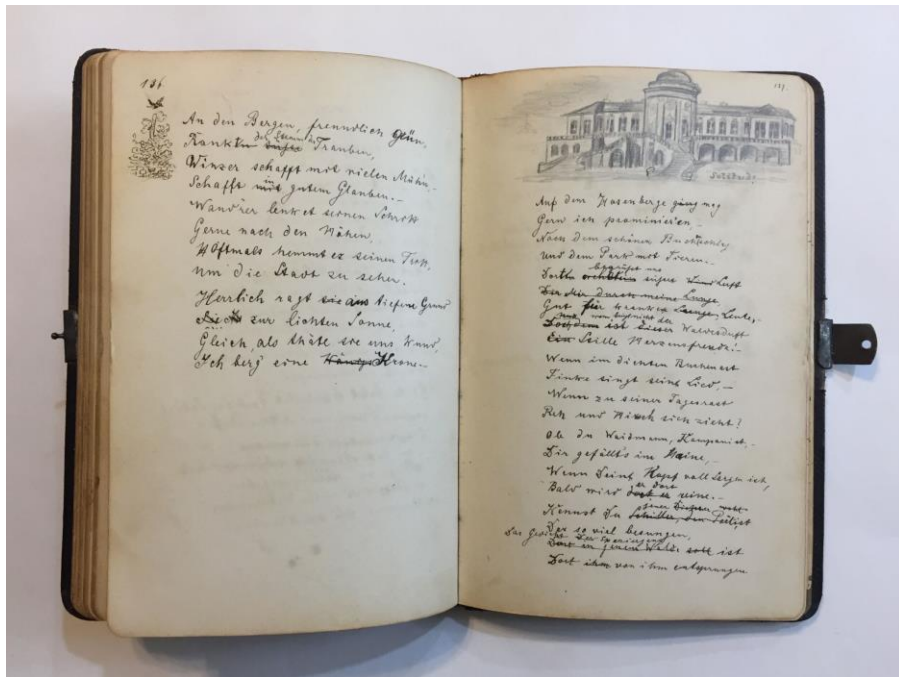 136.
An den Bergen, freundlich grün,
Trauben,
Winzer schafft mit vielen Mühen
Schafft in gutem Glauben.-
Wand'rer lenket seinen Schritt
Gerne nach den Höhen,
Oftmals hemmt er seinen Tritt,
Um die Stadt zu sehen.
Herrlich ragt sie aus tiefem Grund
zur lichten Sonne,
Gleich, als thäte sie uns kund,
Ich berg' eine Krone.-
137.
Solitude
Auf dem Hasenberge
Gern ich prominieren.-
Nach dem schönen
Und dem Park mit Tieren.-
begrüßt uns
Dort Luft
Die mir durch meine Lunge,
Gut für kranke Lunge, Leute,-
ist dieser Waldesduft
Ein Stille Herzensfreude!-
Wenn im dichten Buchenast
Finke singt sein Lied,-
Wenn zu seiner Tagesrast
Reh und Hirsch sich zieht!
Ob du Waidmann, Komponist,-
Dir gefällt's im Haine,-
Wenn Deine Kopf voll Sorgen ist,
er dort
Bald wird dort er reine.-
Kennst Du
Der so viel besungen,
Das Gedicht
ist
Dort ihm von ihm entsprungen